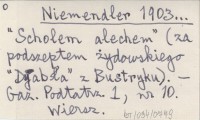 Niemendler 1903...
"Scholem alechem" (za
podszeptem żydowskiego
"Djabła" z Bustryku). —
Gaz. Podtatrz. 1, nr 10.
Wiersz.